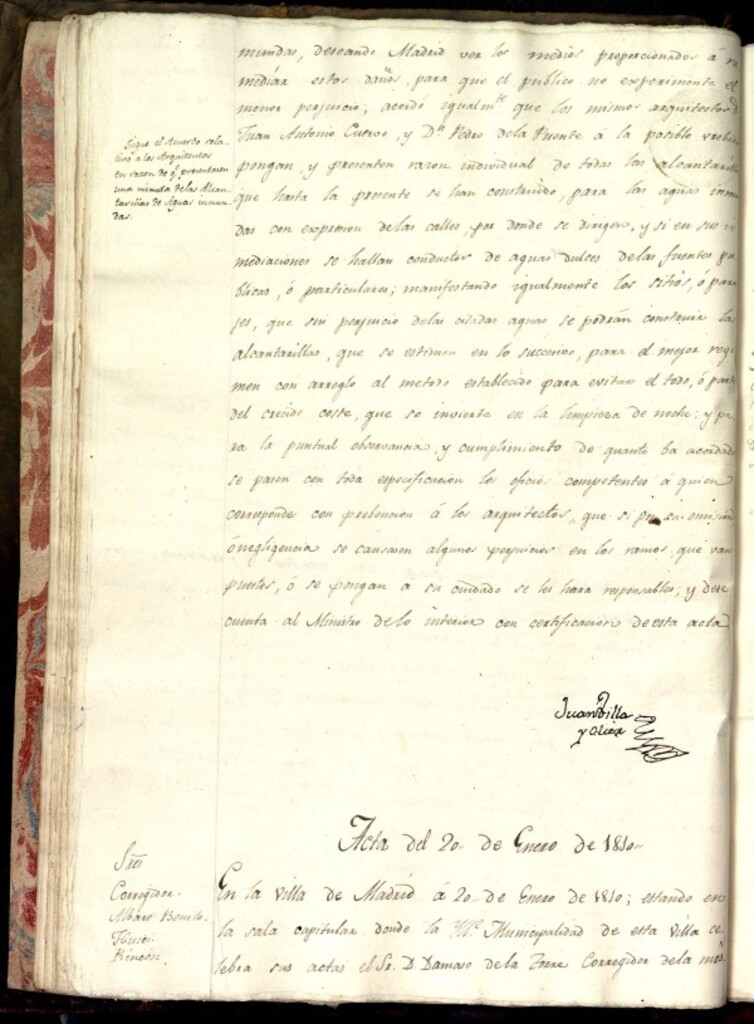 mundas, deseando Madrid ver los medios proporcionados á re
mediar estos daños, para que el publico no experimente el
menor perjuicio; acordó igualmte que los mismos arquitectos D
Juan Antonio Cuervo, y Dn Pedro dela Puente á la posible
pongan y presenten razon individual de todas las alcantarillas
que hasta la presente se han construido, para las aguas inmun
das con expresion delas calles, por donde se dirigen, y si en sus in
mediaciones se hallan conductos de aguas dulces delas fuentes pu
blicas, ó particulares; manifestando igualmente los sitios, ó para
jes, que sin perjuicio delas citadas aguas se podrán construir las
alcantarillas, que se estimen en lo succesivo, para el mejor regi
men con arreglo al metodo establecido para evitar el todo, ó parte
del crecido coste, que se invierte en la limpieza de noche; y pa
ra la puntual observancia, y cumplimiento de quanto ba acordado
se pasen con toda especificacion los oficios competentes á quien
corresponde con prebencion á los arquitectos, que si por su omision
ó negligencia se causasen algunos perjuicios en los ramos, que van
puestos, ó se pongan á su cuidado se les hara responsables; y dese
cuenta al Ministro delo interior con certificacion de esta acta
Sigue el Acuerdo rela-
tivo a los Arquitectos
en razon de q. presentasen
una minuta delas Alcan-
tarillas de Aguas inmun-
das.
Juan Villa
y Olier
Acta del 20 de Enero de 1810
Sres
Corregidor.
Albaro Benito.
Rincon.
En la Villa de Madrid á 20 de Enero de 1810; estando en
la sala capitular donde la Ille. Municipalidad de esta Villa ce-
lebra sus actas el Sr. D. Damaso de la Torre Corregidor de la mis